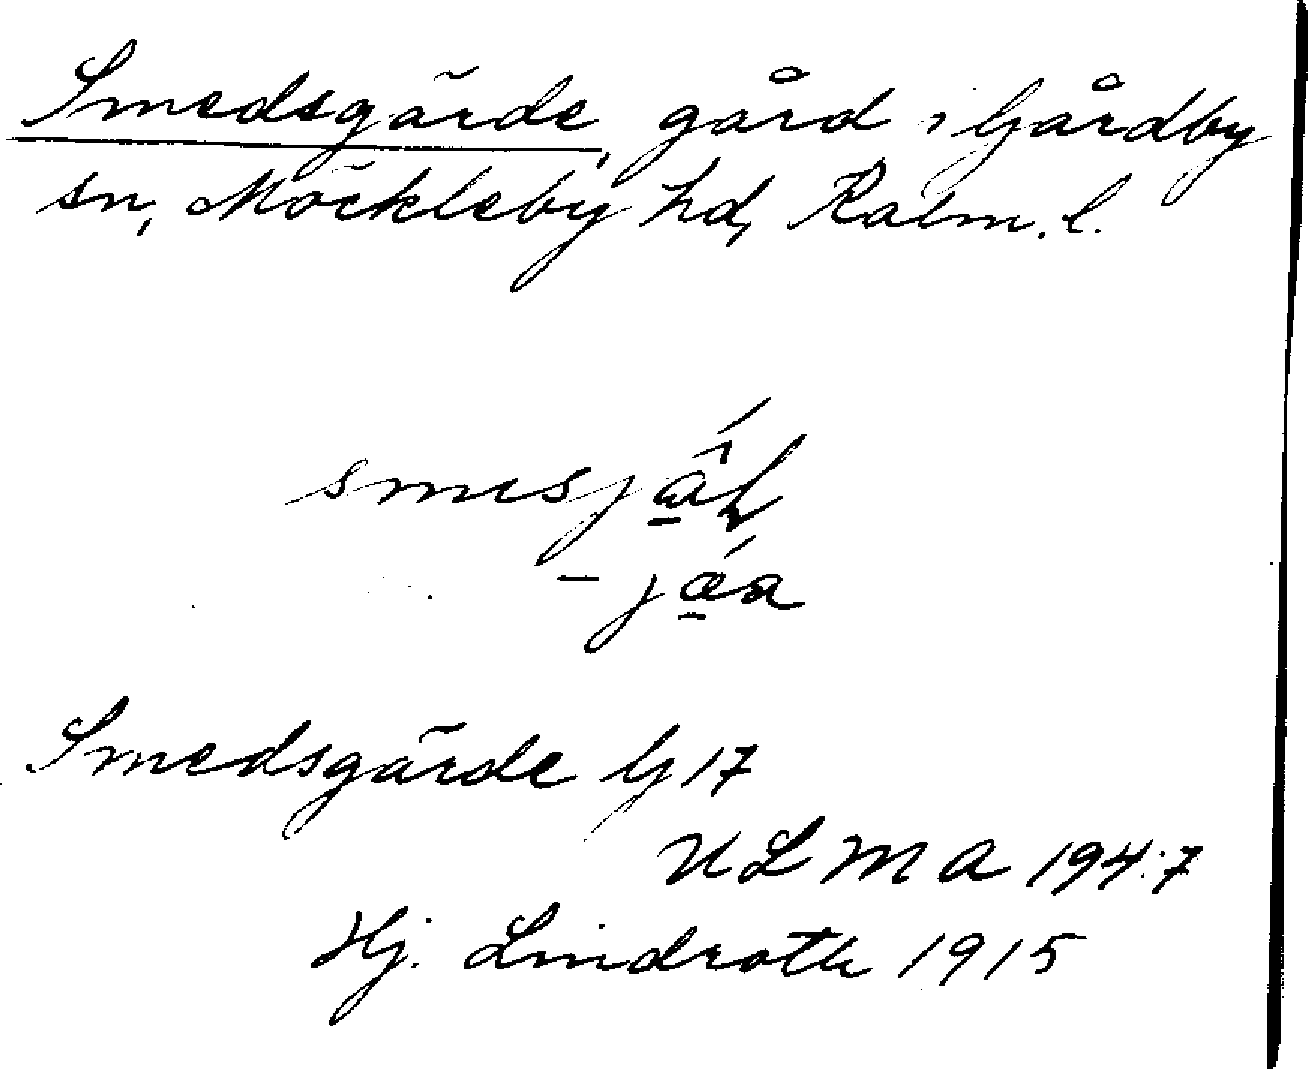 Smedsgärde, gård i Gårdby
sn, Möckleby hd, Kalm. l.
Smedsgärde G 17
ULMA 194:7
Hj. Lindroth 1915